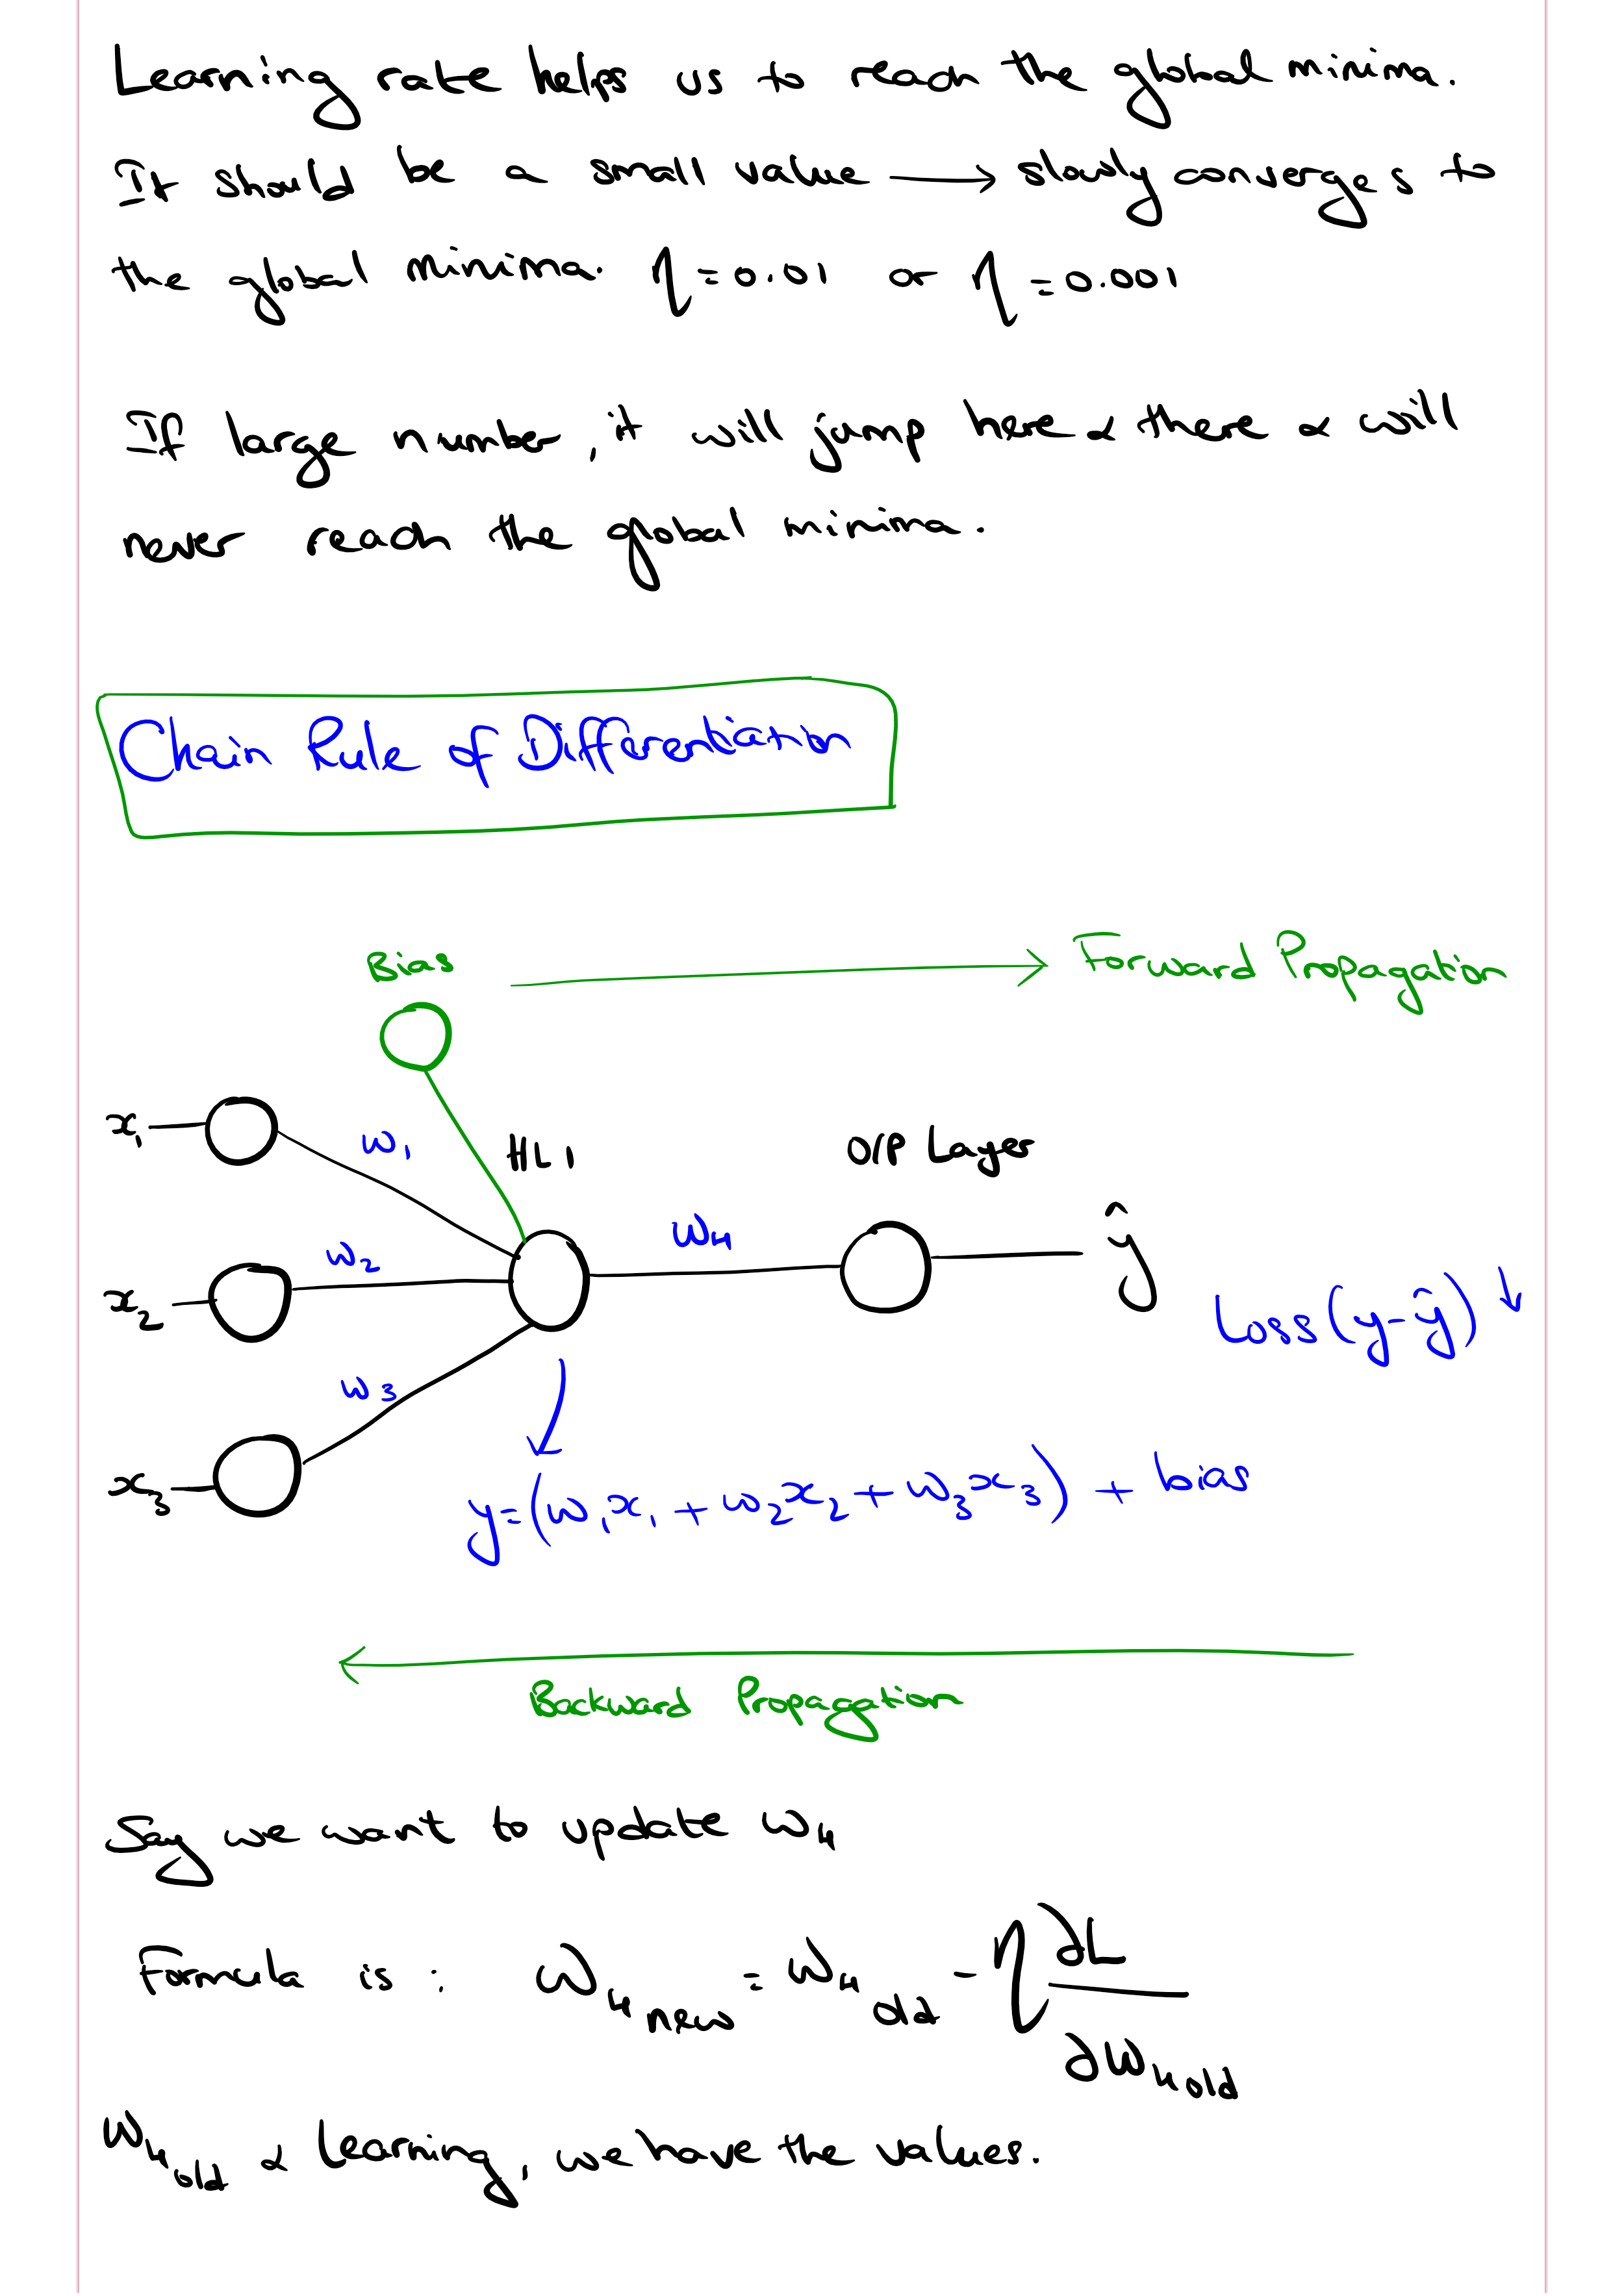 Learning rate helps us to reach the global minima.
It should be a small value → slowly converges to
the global minima. η = 0.01 or η = 0.001
If large number, it will jump here & there & will
never reach the global minima.
Chain Rule of Differentiation
Bias → Forward Propagation
x₁ w₁ HL1 O/P Layer
x₂ w₂ w₄ ŷ
Loss (y-ŷ) ↓
x₃ w₃
y = (w₁x₁ + w₂x₂ + w₃x₃) + bias
← Backward Propagation
Say we want to update w₄
Formula is : w₄ new = w₄ old - η ∂L / ∂w₄ old
w₄ old & Learning, we have the values.